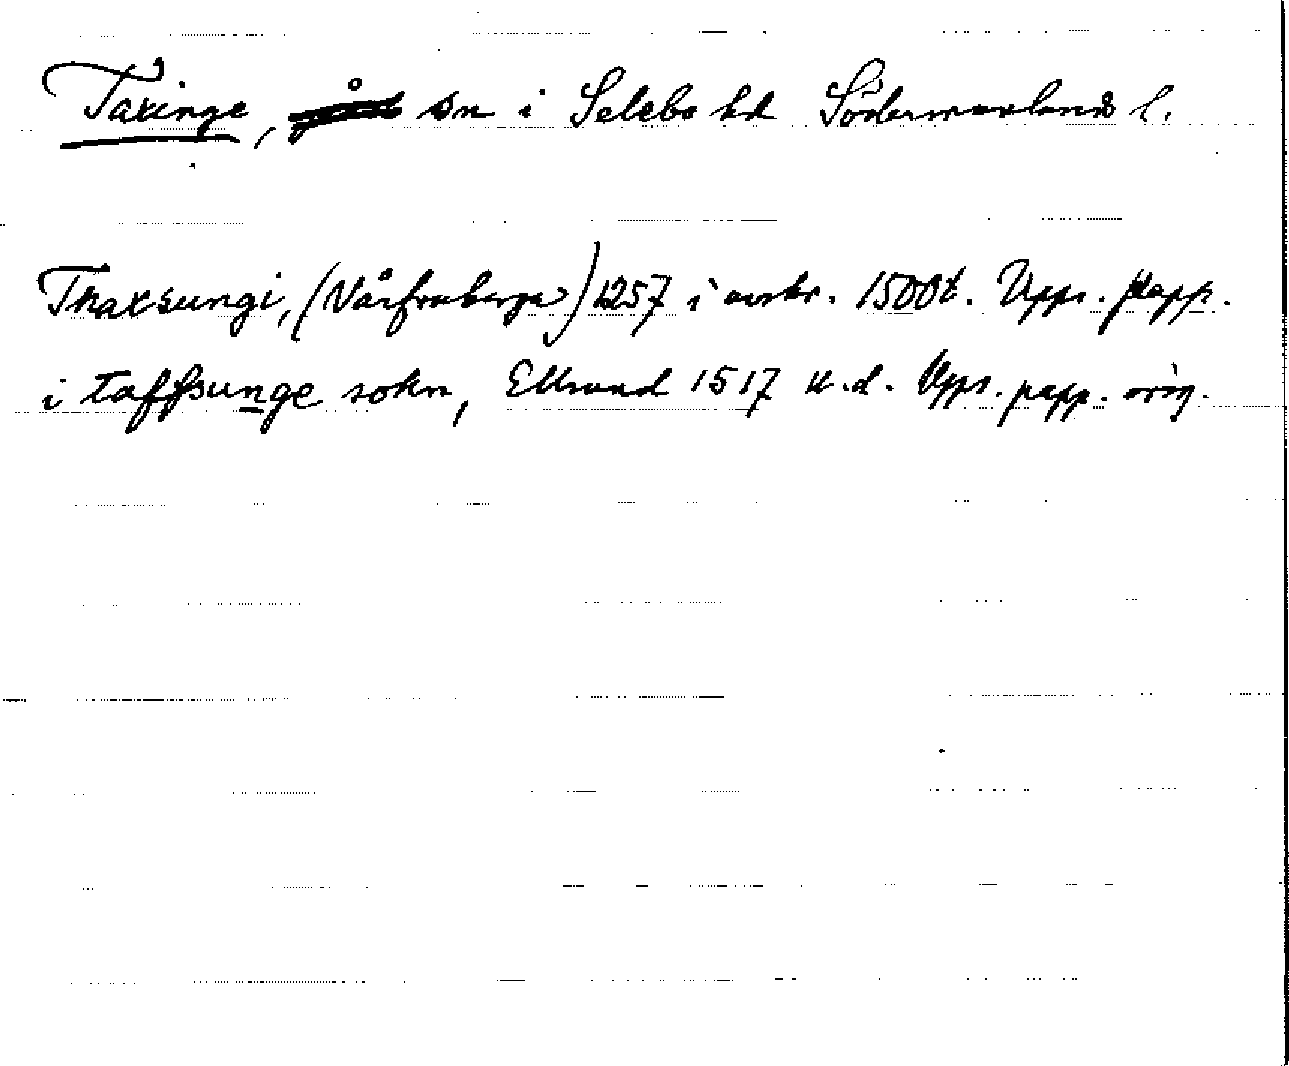 Taxinge, sn i Selebo hd Södermanlands l.
Thaxsungi, (Vårfruberga) 1257 i avskr. 1500t. Upps. papp.
i taffsunge sokn, Ellsund 1517 u.d. Upps. papp. orig.